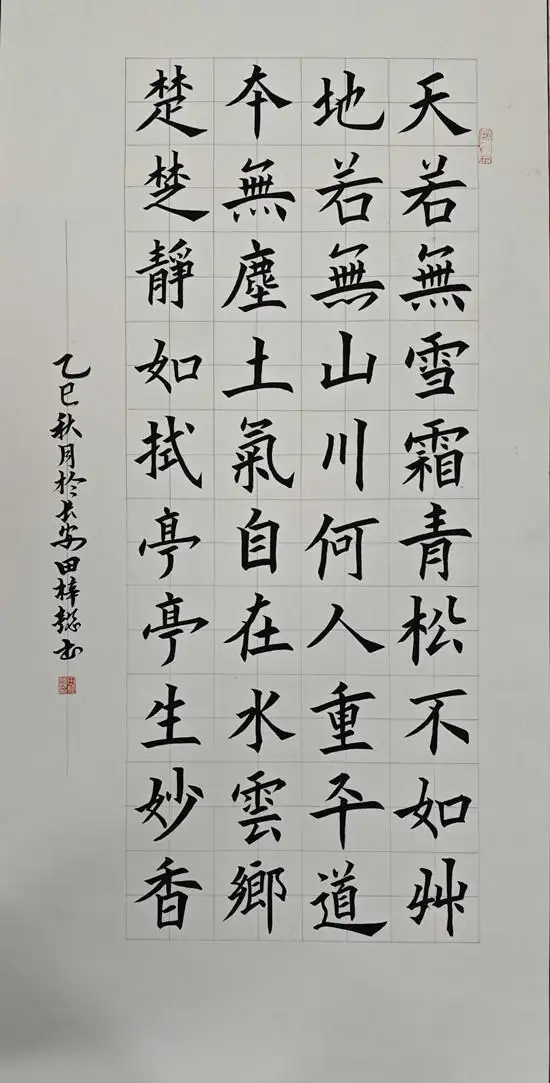 天若無雪霜青松不如艸
地若無山川何人重平道
本無塵土氣自在水雲鄉
楚楚靜如拭亭亭生妙香
乙巳秋月於长安田梓懿书